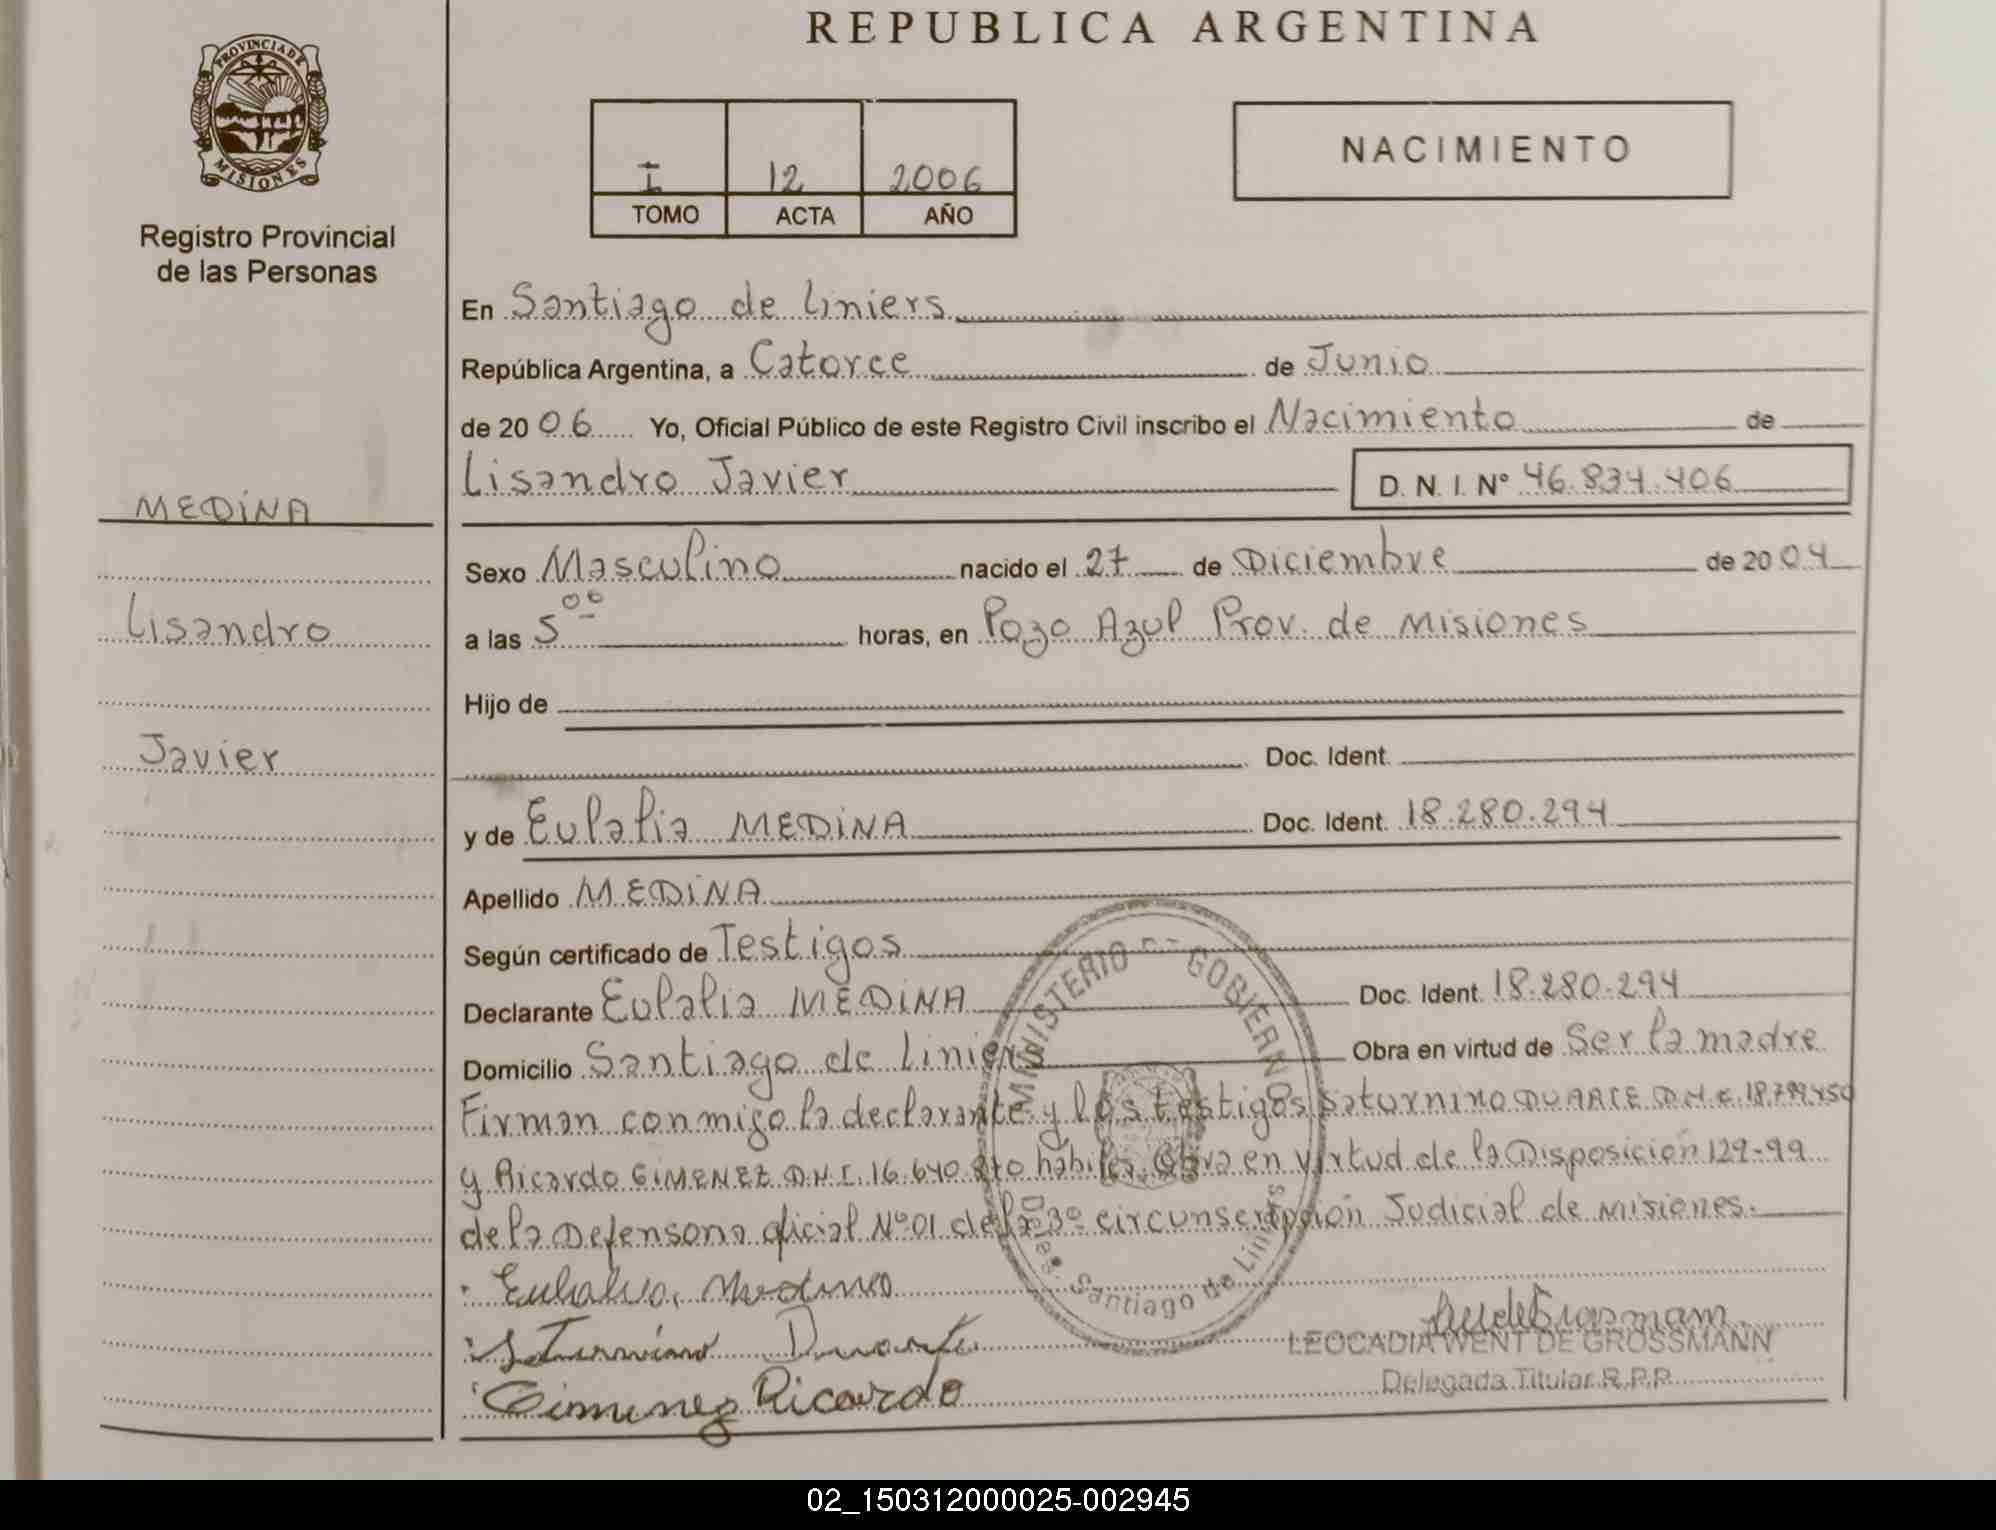 REPUBLICA ARGENTINA
PROVINCIA DE
MISIONES
Registro Provincial
de las Personas
I 12 2006
TOMO ACTA AÑO
NACIMIENTO
En Santiago de Liniers
República Argentina, a Catorce de Junio
de 2006 Yo, Oficial Público de este Registro Civil inscribo el Nacimiento de
Lisandro Javier D. N. I. Nº 46.834.406
MEDiNA
Lisandro
Javier
Sexo Masculino nacido el 27 de Diciembre de 2004
a las 5 00 horas, en Pozo Azul Prov. de Misiones
Hijo de
Doc. Ident.
y de Eulalia MEDiNA Doc. Ident. 18.280.294
Apellido MEDiNA
Según certificado de Testigos
Declarante Eulalia MEDiNA Doc. Ident. 18.280.294
Domicilio Santiago de Liniers Obra en virtud de Ser la madre
Firman conmigo la declarante y los testigos Saturnino DUARTE
y Ricardo GiMENEZ D.N.I. 16.640. habiles. Obra en virtud de la Disposicion 129-99
de la Defensoria oficial Nº 01 de la 3º circunscripción Judicial de Misiones.
MINISTERIO DE GOBIERNO
Deleg. Santiago de Liniers
Eulalia Medina
Saturnino Duarte
Gimenez Ricardo
LEOCADIA WENT DE GROSSMANN
Delegada Titular R.P.P.
02_150312000025-002945